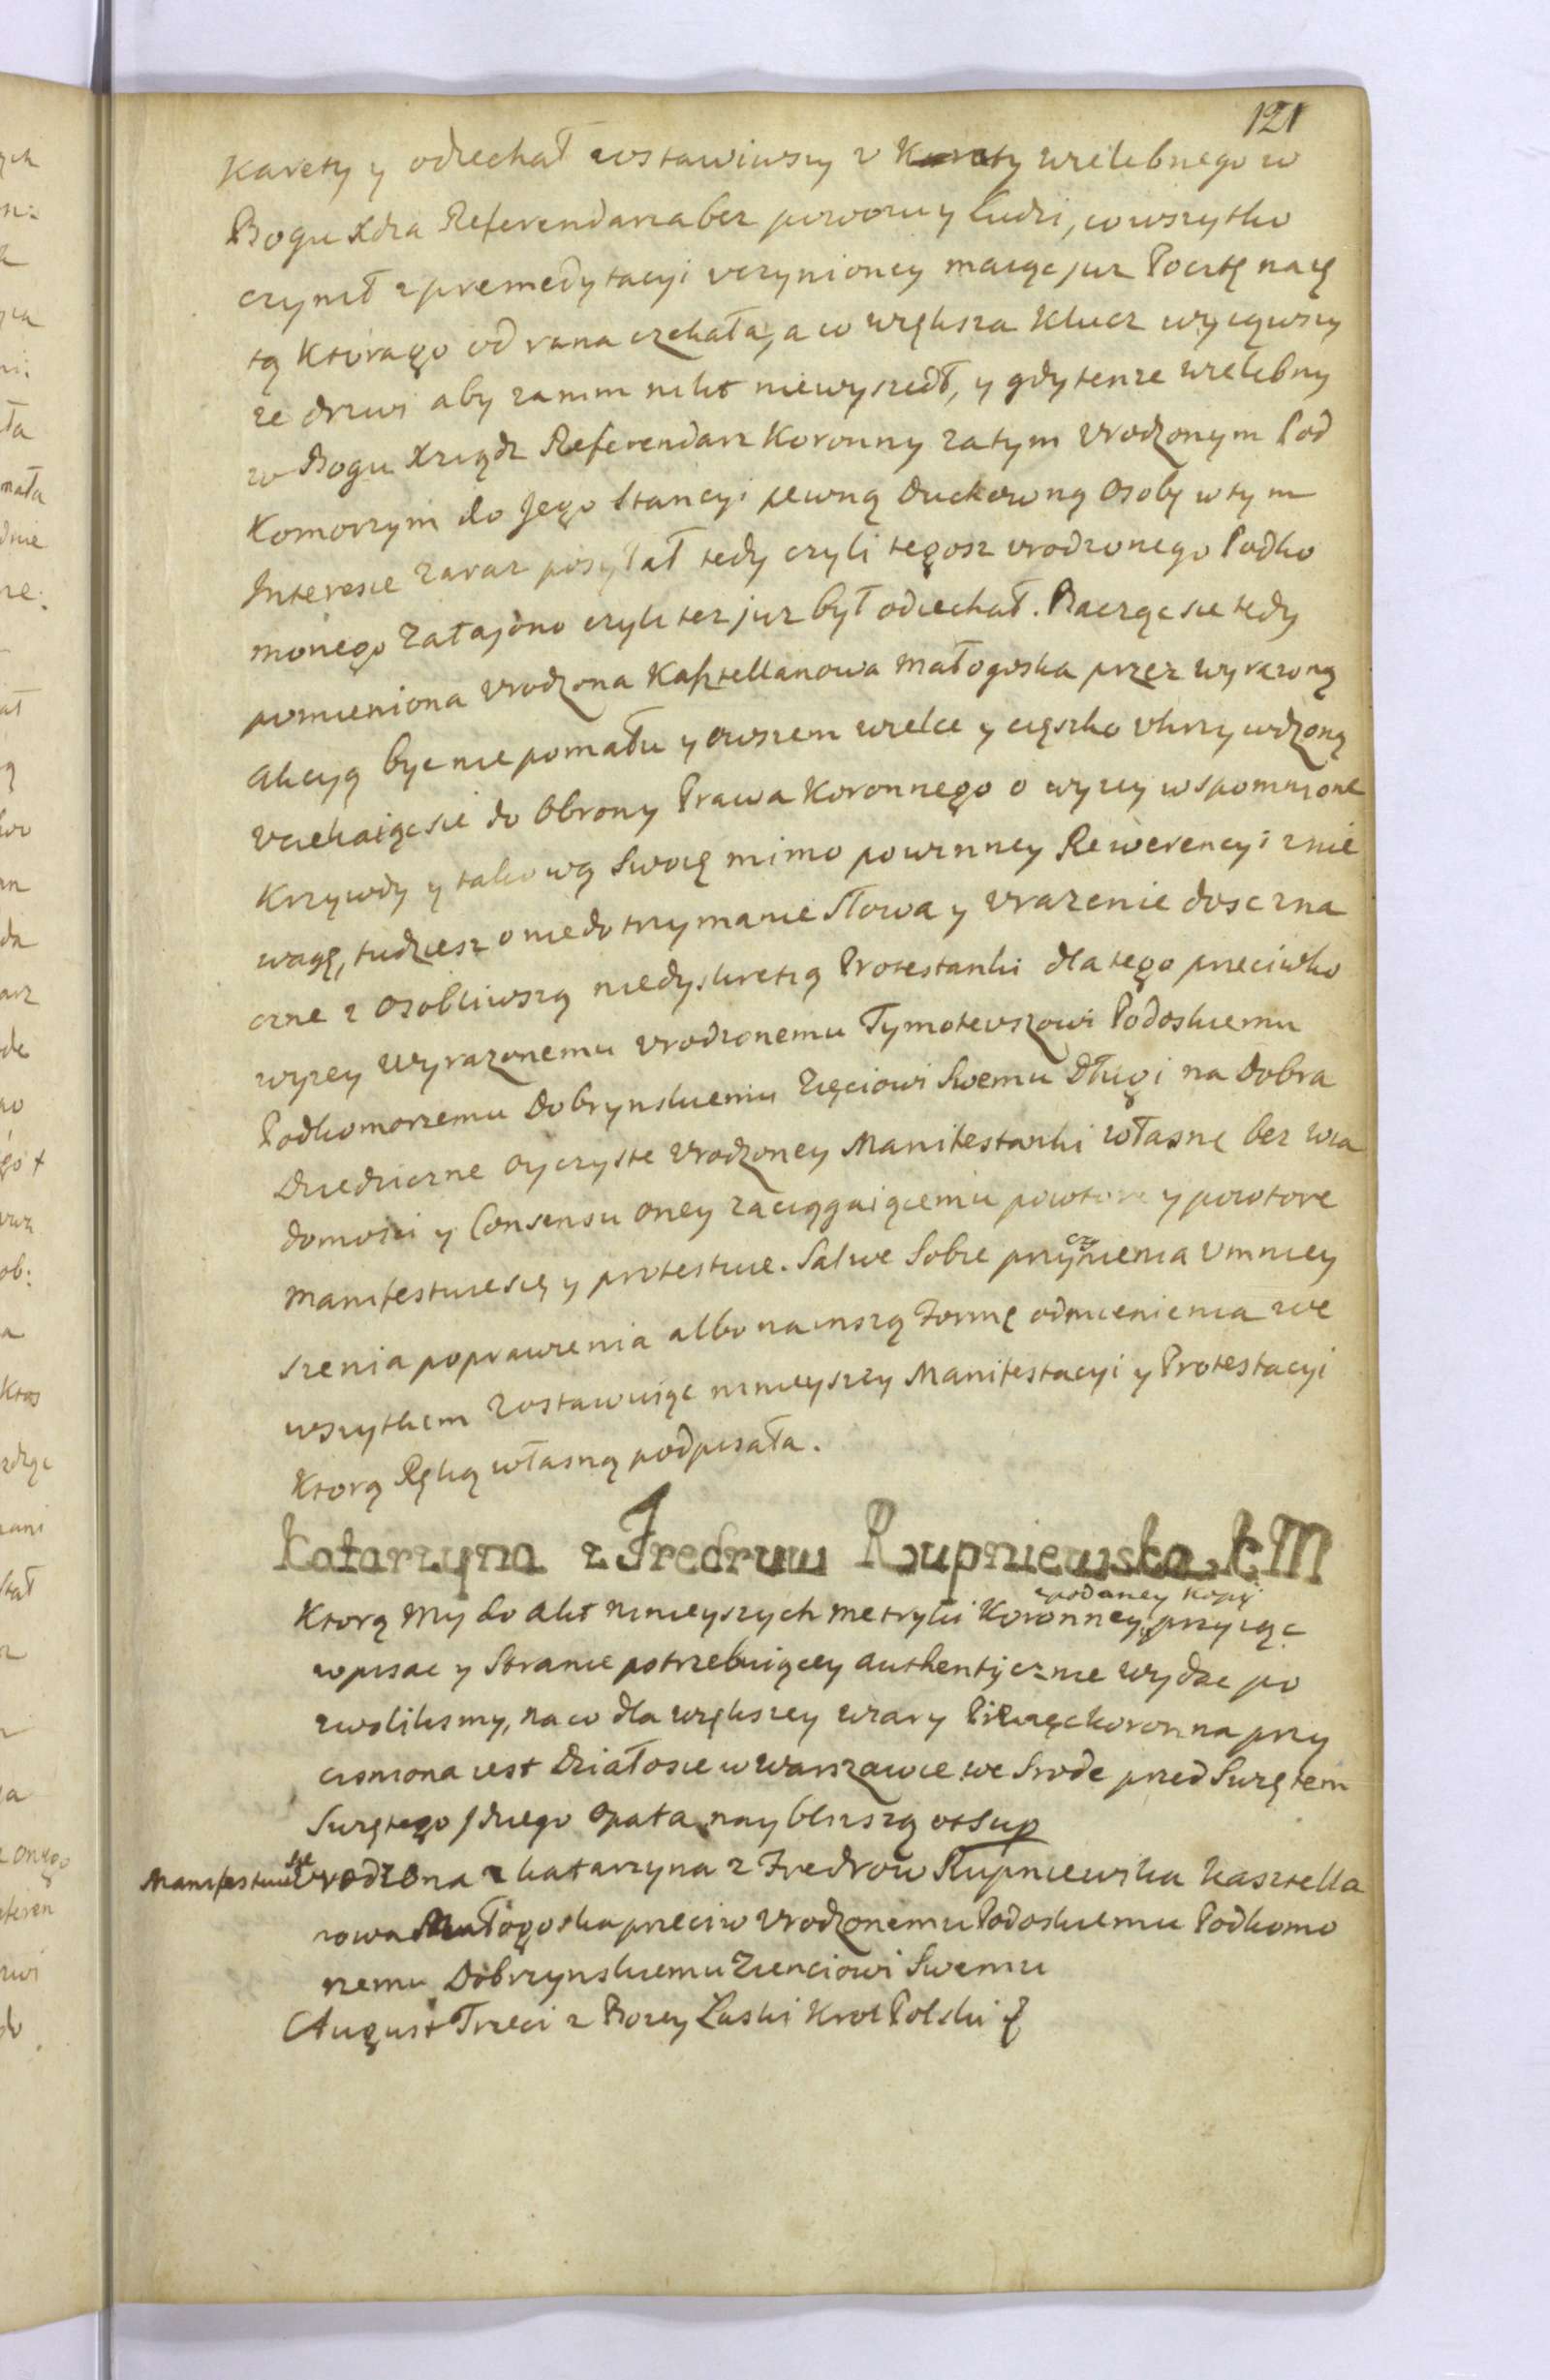 121
Karety y odiechał zostawiwszy v Karety wielebnego w
Bogu Xdza Referendarza bez pozwozu y ludzi, co wszytko
czynił z premedytacyi vczynioney maiąc juz Pocztę naię
tą ktora go od rana czekała, a co większa Klucz wyiąwszy
ze drzwi aby zanim nikt niewyszedł, y gdy tenze wielebny
w Bogu Xiądz Referendarz Koronny zatym vrodzonym Pod
Komorzym do Jego Stancyi pewną Duchowną Osobę w tym
Interesie zaraz posyłał tedy czyli tegosz vrodzonego Podko
morzego zatajono czyli tez juz był odiechał. Bacząc sie tedy
pomieniona vrodzona Kasztellanowa Małogoska przez wyrazoną
akcyą byc nie pomału y owszem wielce y cięszko vkrzywdzoną
vciekaiąc sie do Obrony Prawa Koronnego o wyzey wspomnione
Krzywdy y takową Swoię mimo powinney Rewerencyi znie
wagę, tudziesz o niedotrzymanie Słowa y vrazenie dosc zna
czne z osobliwszą niedyskretią Protestantki dlatego przeciwko
wyzey wyrazonemu vrodzonemu Tymoteuszowi Podoskiemu
Podkomorzemu Dobrynskiemu Zięciowi Swemu Długi na Dobra
Dziedziczne oyczyste vrodzoney Manifestantki własne bez wia
domosci y Consensu oney zaciągaiącemu powtore y powtore
manifestuie się y protestuie. Salwe Sobie przyczynienia vmniey
szenia poprawienia albo na inszą Formę odmienienia we
wszytkim zostawuiąc ninieyszey Manifestacyi y Protestacyi
Ktorą Ręką własną podpisała.
Katarzyna z Fredruw Rupniewska K M
Ktorą My do Akt ninieyszych metryki Koronney z podaney kopij przyiąc
wpisac y Stronie potrzebuiącey authentycznie wydac po
zwolilismy, na co dla większey wiary Pieczęc koronna przy
cisniona iest Działo sie w Warszawie we Srode przed Swiętem
Swiętego Idziego Opata nayblizszą ot Sup
Manifestuie się Vrodzona Katarzyna z Fredrow Rupniewska Kasztella
nowa Małogoska przeciw Vrodzonemu Podoskiemu Podkomo
rzemu Dobrzynskiemu Zienciowi Swemu
August Trzeci z Bozey Laski Krol Polski &